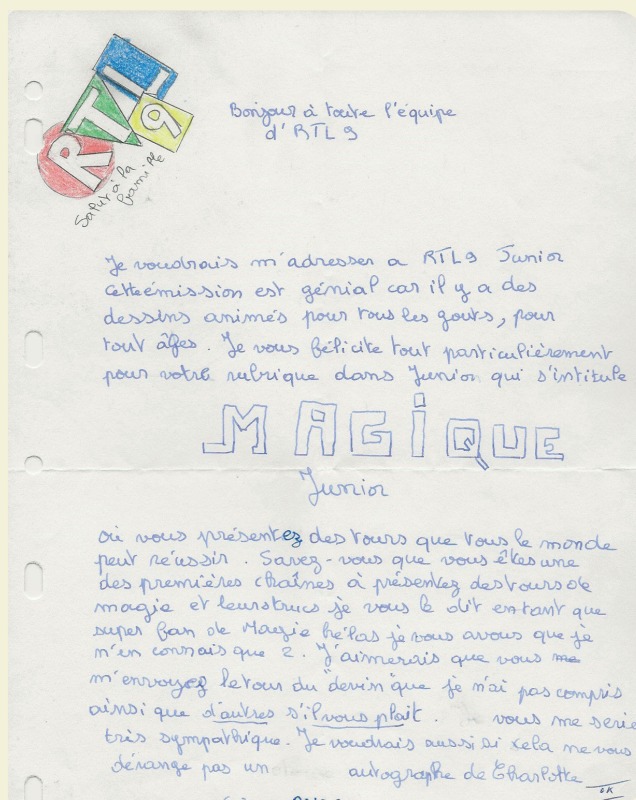 RTL9
Salut à la
famille
Bonjour à toute l'équipe
d'RTL9
Je voudrais m'adresser a RTL9 Junior
cette émission est génial car il y a des
dessins animés pour tous les gouts, pour
tout âges. Je vous félicite tout particulièrement
pour votre rubrique dans Junior qui s'intitule
MAGiQUE
Junior
où vous présentez des tours que tous le monde
peut réussir. Savez-vous que vous êtes une
des premières chaînes à présentez des tours de
magie et leurs trucs je vous le dit en tant que
super fan de Magie hélas je vous avous que je
n'en connais que 2. J'aimerais que vous me
m'envoyez le tour du "devin" que je n'ai pas compris
ainsi que d'autres s'il vous plait. vous me serie
très sympathique. Je voudrais aussi si cela ne vous
dérange pas un autographe de Charlotte
OK